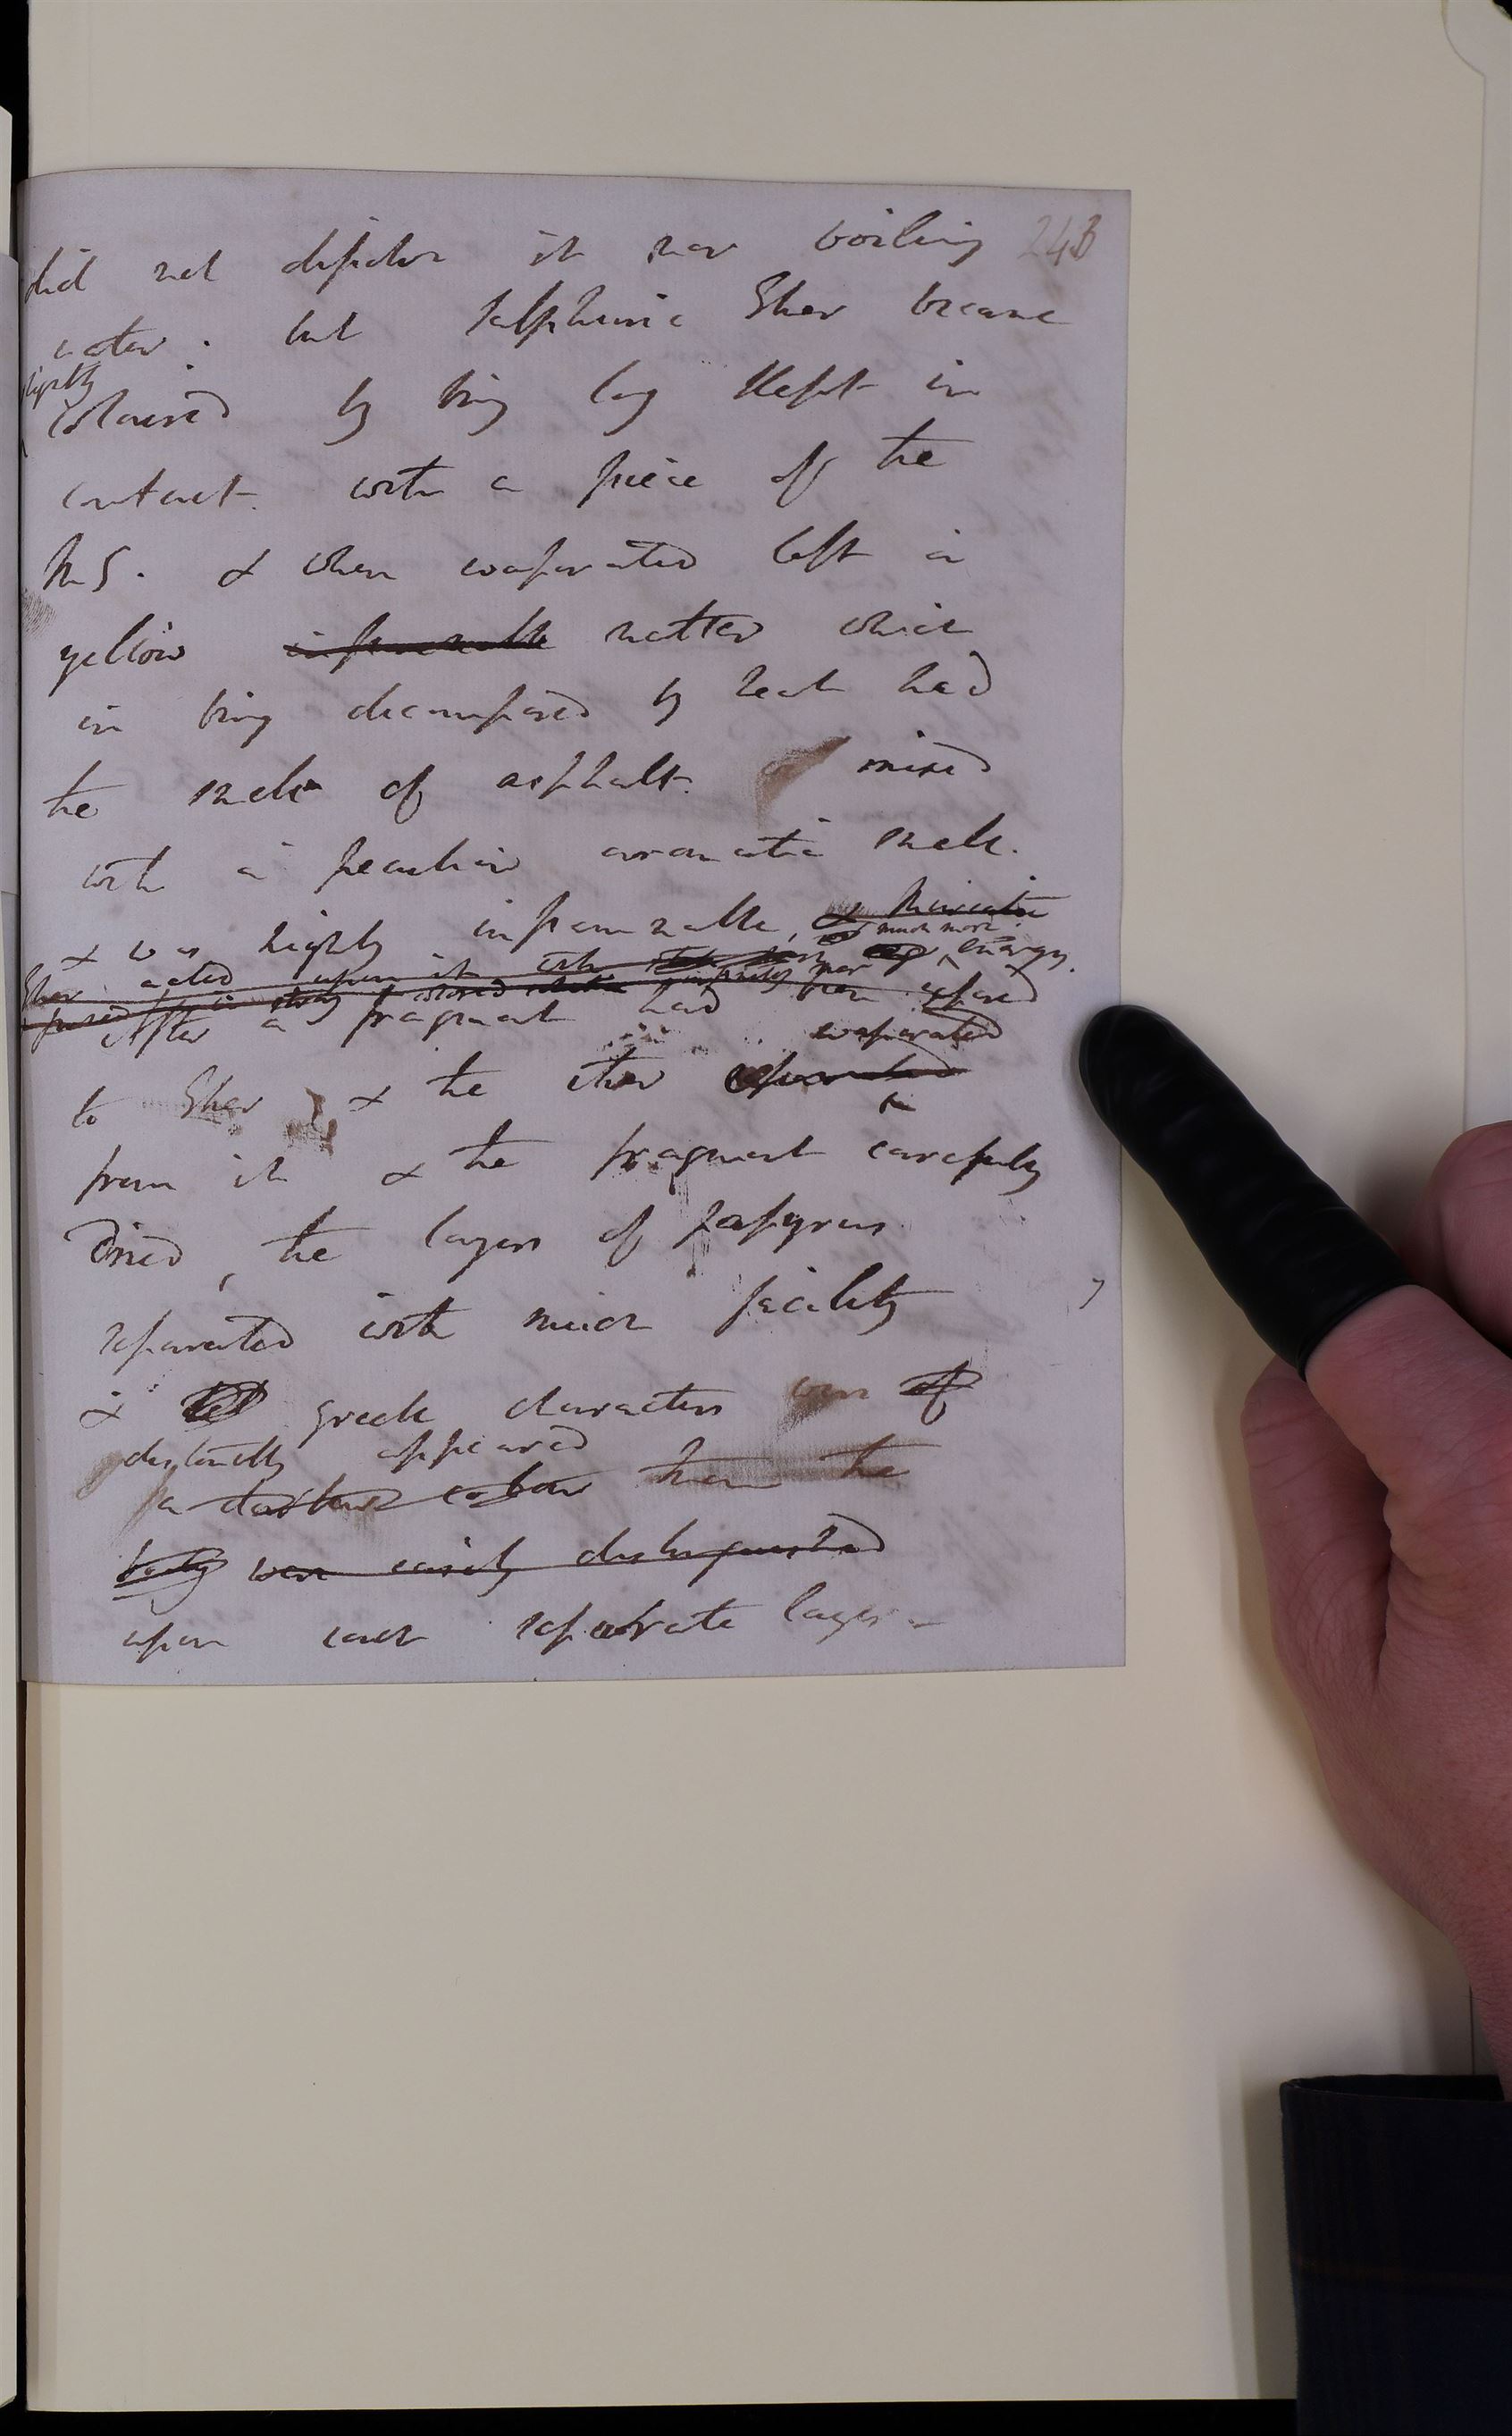 24B
did not discolor it nor boiling
water. but Sulphuric Ether became
slightly
coloured by being long kept in
contact. with a piece of the
M S. & when evaporated left a
yellow inflammable matter which
in being decomposed by heat had
the smell of asphalt. mixed
with a peculiar aromatic smell.
& was highly inflammable, & Muriatic
much more
Ether acted upon it with energy.
After a fragment had been exposed
evaporated
to Ether & the ether
from it & the fragment carefully
dried, the layers of papyrus
separated with much facility
& Greek characters were of
distinctly appeared
a darker colour than the
were easily distinguished
upon each separate layer -